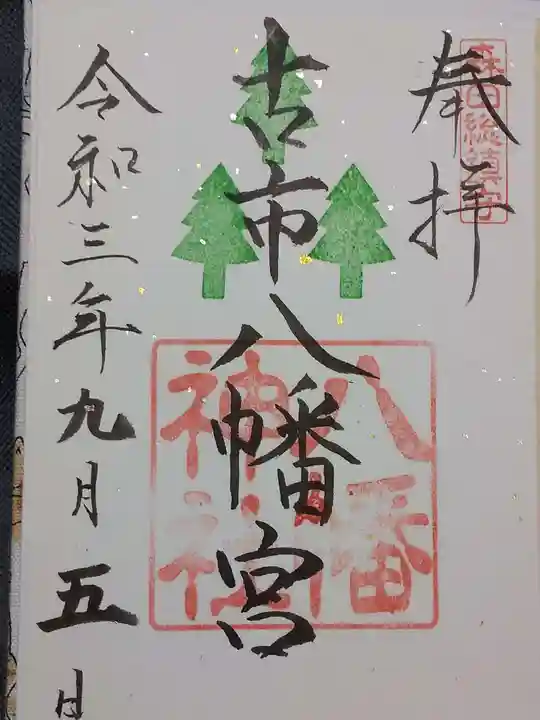 奉拝
森田総鎮守
古市八幡宮
八幡
神社
令和三年九月五日